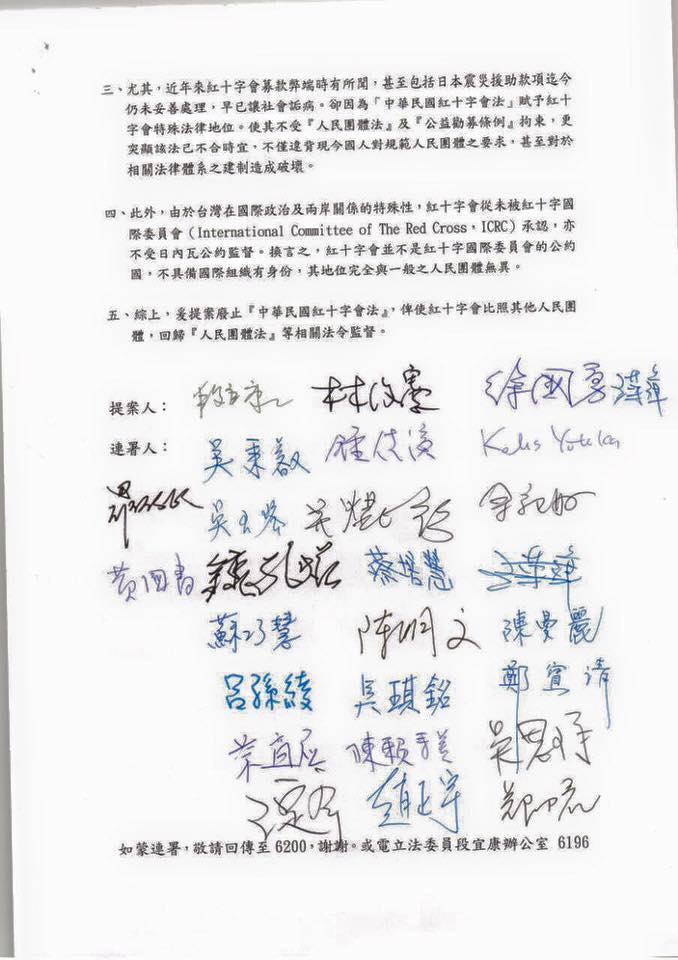 三、尤其，近年來紅十字會募款弊端時有所聞，甚至包括日本震災援助款項迄今
仍未妥善處理，早已讓社會詬病。卻因為「中華民國紅十字會法」賦予紅十
字會特殊法律地位。使其不受『人民團體法』及『公益勸募條例』拘束，更
突顯該法已不合時宜，不僅違背現今國人對規範人民團體之要求，甚至對於
相關法律體系之建制造成破壞。
四、此外，由於台灣在國際政治及兩岸關係的特殊性，紅十字會從未被紅十字國
際委員會（International Committee of The Red Cross，ICRC）承認，亦
不受日內瓦公約監督。換言之，紅十字會並不是紅十字國際委員會的公約
國，不具備國際組織有身份，其地位完全與一般之人民團體無異。
五、綜上，爰提案廢止『中華民國紅十字會法』，俾使紅十字會比照其他人民團
體，回歸『人民團體法』等相關法令監督。
提案人： 段宜康 林俊憲 徐國勇
連署人： 吳秉叡 鍾佳濱 Kolas Yotaka
吳玉琴
黃國書 鍾孔炤 蔡培慧
蘇巧慧 陳明文 陳曼麗
呂孫綾 吳琪銘 鄭寶清
葉宜津 陳賴素美 吳思瑤
趙正宇
如蒙連署，敬請回傳至 6200，謝謝。或電立法委員段宜康辦公室 6196